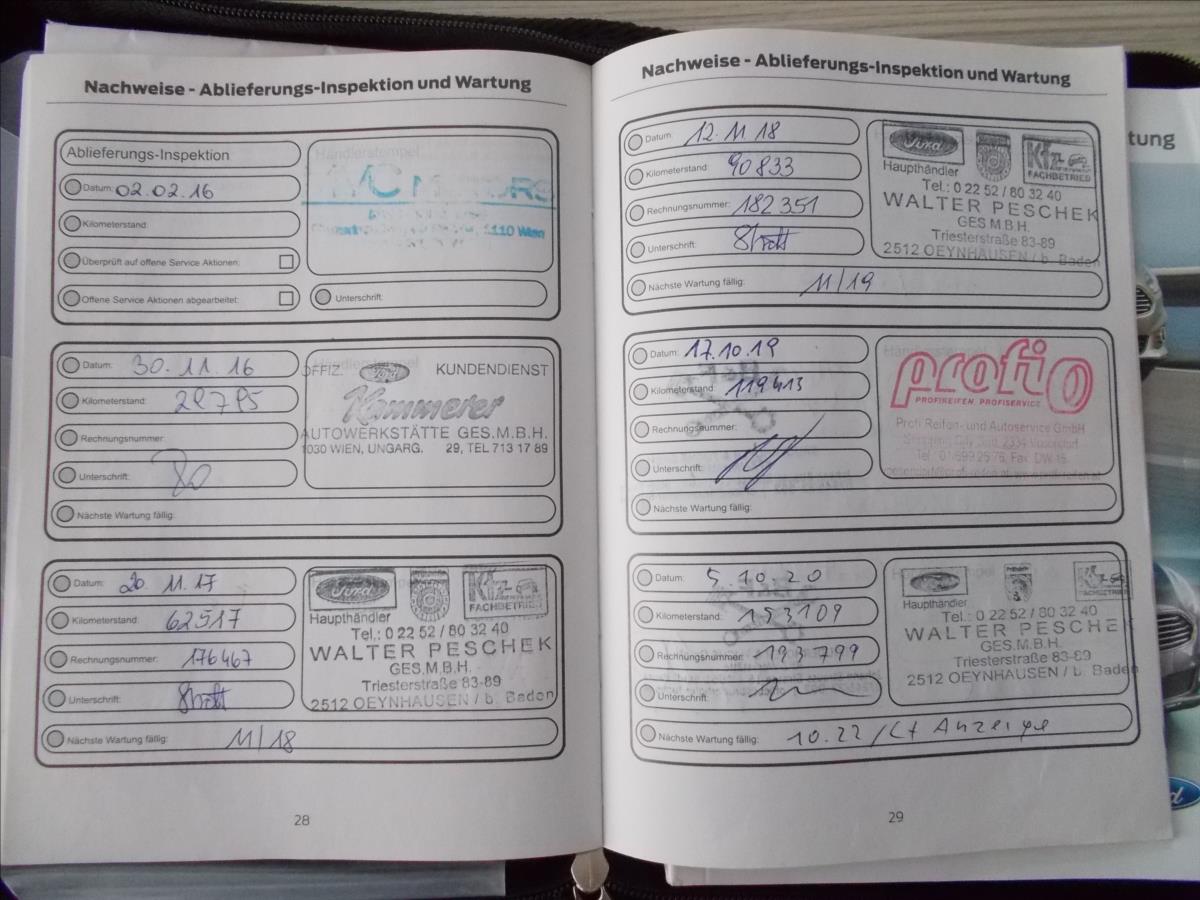 Nachweise - Ablieferungs-Inspektion und Wartung
Ablieferungs-Inspektion
Datum: 02.02.16
Kilometerstand:
Überprüft auf offene Service Aktionen:
Offene Service Aktionen abgearbeitet:
Händlerstempel
1110 Wien
Unterschrift:
Datum: 30.11.16
Kilometerstand: 28795
Rechnungsnummer:
Unterschrift:
Nächste Wartung fällig:
OFFIZ. Ford KUNDENDIENST
Kammerer
AUTOWERKSTÄTTE GES.M.B.H.
1030 WIEN, UNGARG. 29, TEL 713 17 89
Datum: 20.11.17
Kilometerstand: 62517
Rechnungsnummer: 176467
Unterschrift:
Nächste Wartung fällig: 11/18
Ford Kfz
Haupthändler FACHBETRIEB
Tel.: 0 22 52 / 80 32 40
WALTER PESCHEK
GES.M.B.H.
Triesterstraße 83-89
2512 OEYNHAUSEN / b. Baden
28
Nachweise - Ablieferungs-Inspektion und Wartung
Datum: 12.11.18
Kilometerstand: 90833
Rechnungsnummer: 182351
Unterschrift:
Nächste Wartung fällig: 11/19
Ford Kfz
Haupthändler FACHBETRIEB
Tel.: 0 22 52 / 80 32 40
WALTER PESCHEK
GES.M.B.H.
Triesterstraße 83-89
2512 OEYNHAUSEN / b. Baden
Datum: 17.10.19
Kilometerstand: 119413
Rechnungsnummer:
Unterschrift:
Nächste Wartung fällig:
profi
PROFIREIFEN. PROFISERVICE
Profi Reifen- und Autoservice GmbH
Shopping City Süd, 2334 Vösendorf
Datum: 5 10 20
Kilometerstand: 153109
Rechnungsnummer: 193799
Unterschrift:
Nächste Wartung fällig: 10.22 / lt Anzeige
Ford
Haupthändler
Tel.: 0 22 52 / 80 32 40
WALTER PESCHE
GES.M.B.H.
Triesterstraße 83-89
2512 OEYNHAUSEN / b. Baden
29
rtung